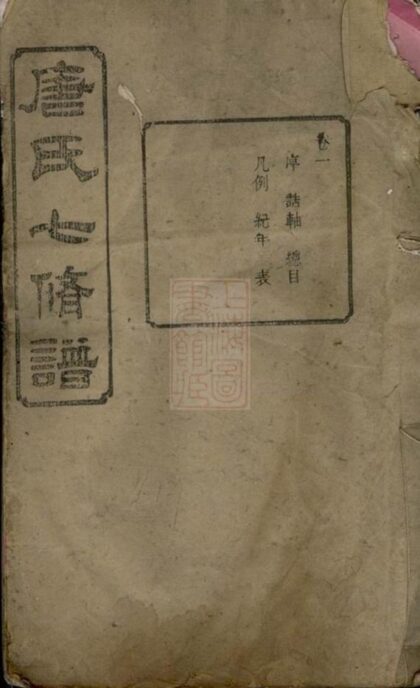 唐氏七脩譜
卷一
序 誥軸 總目
凡例 紀年表
上海圖
書館藏